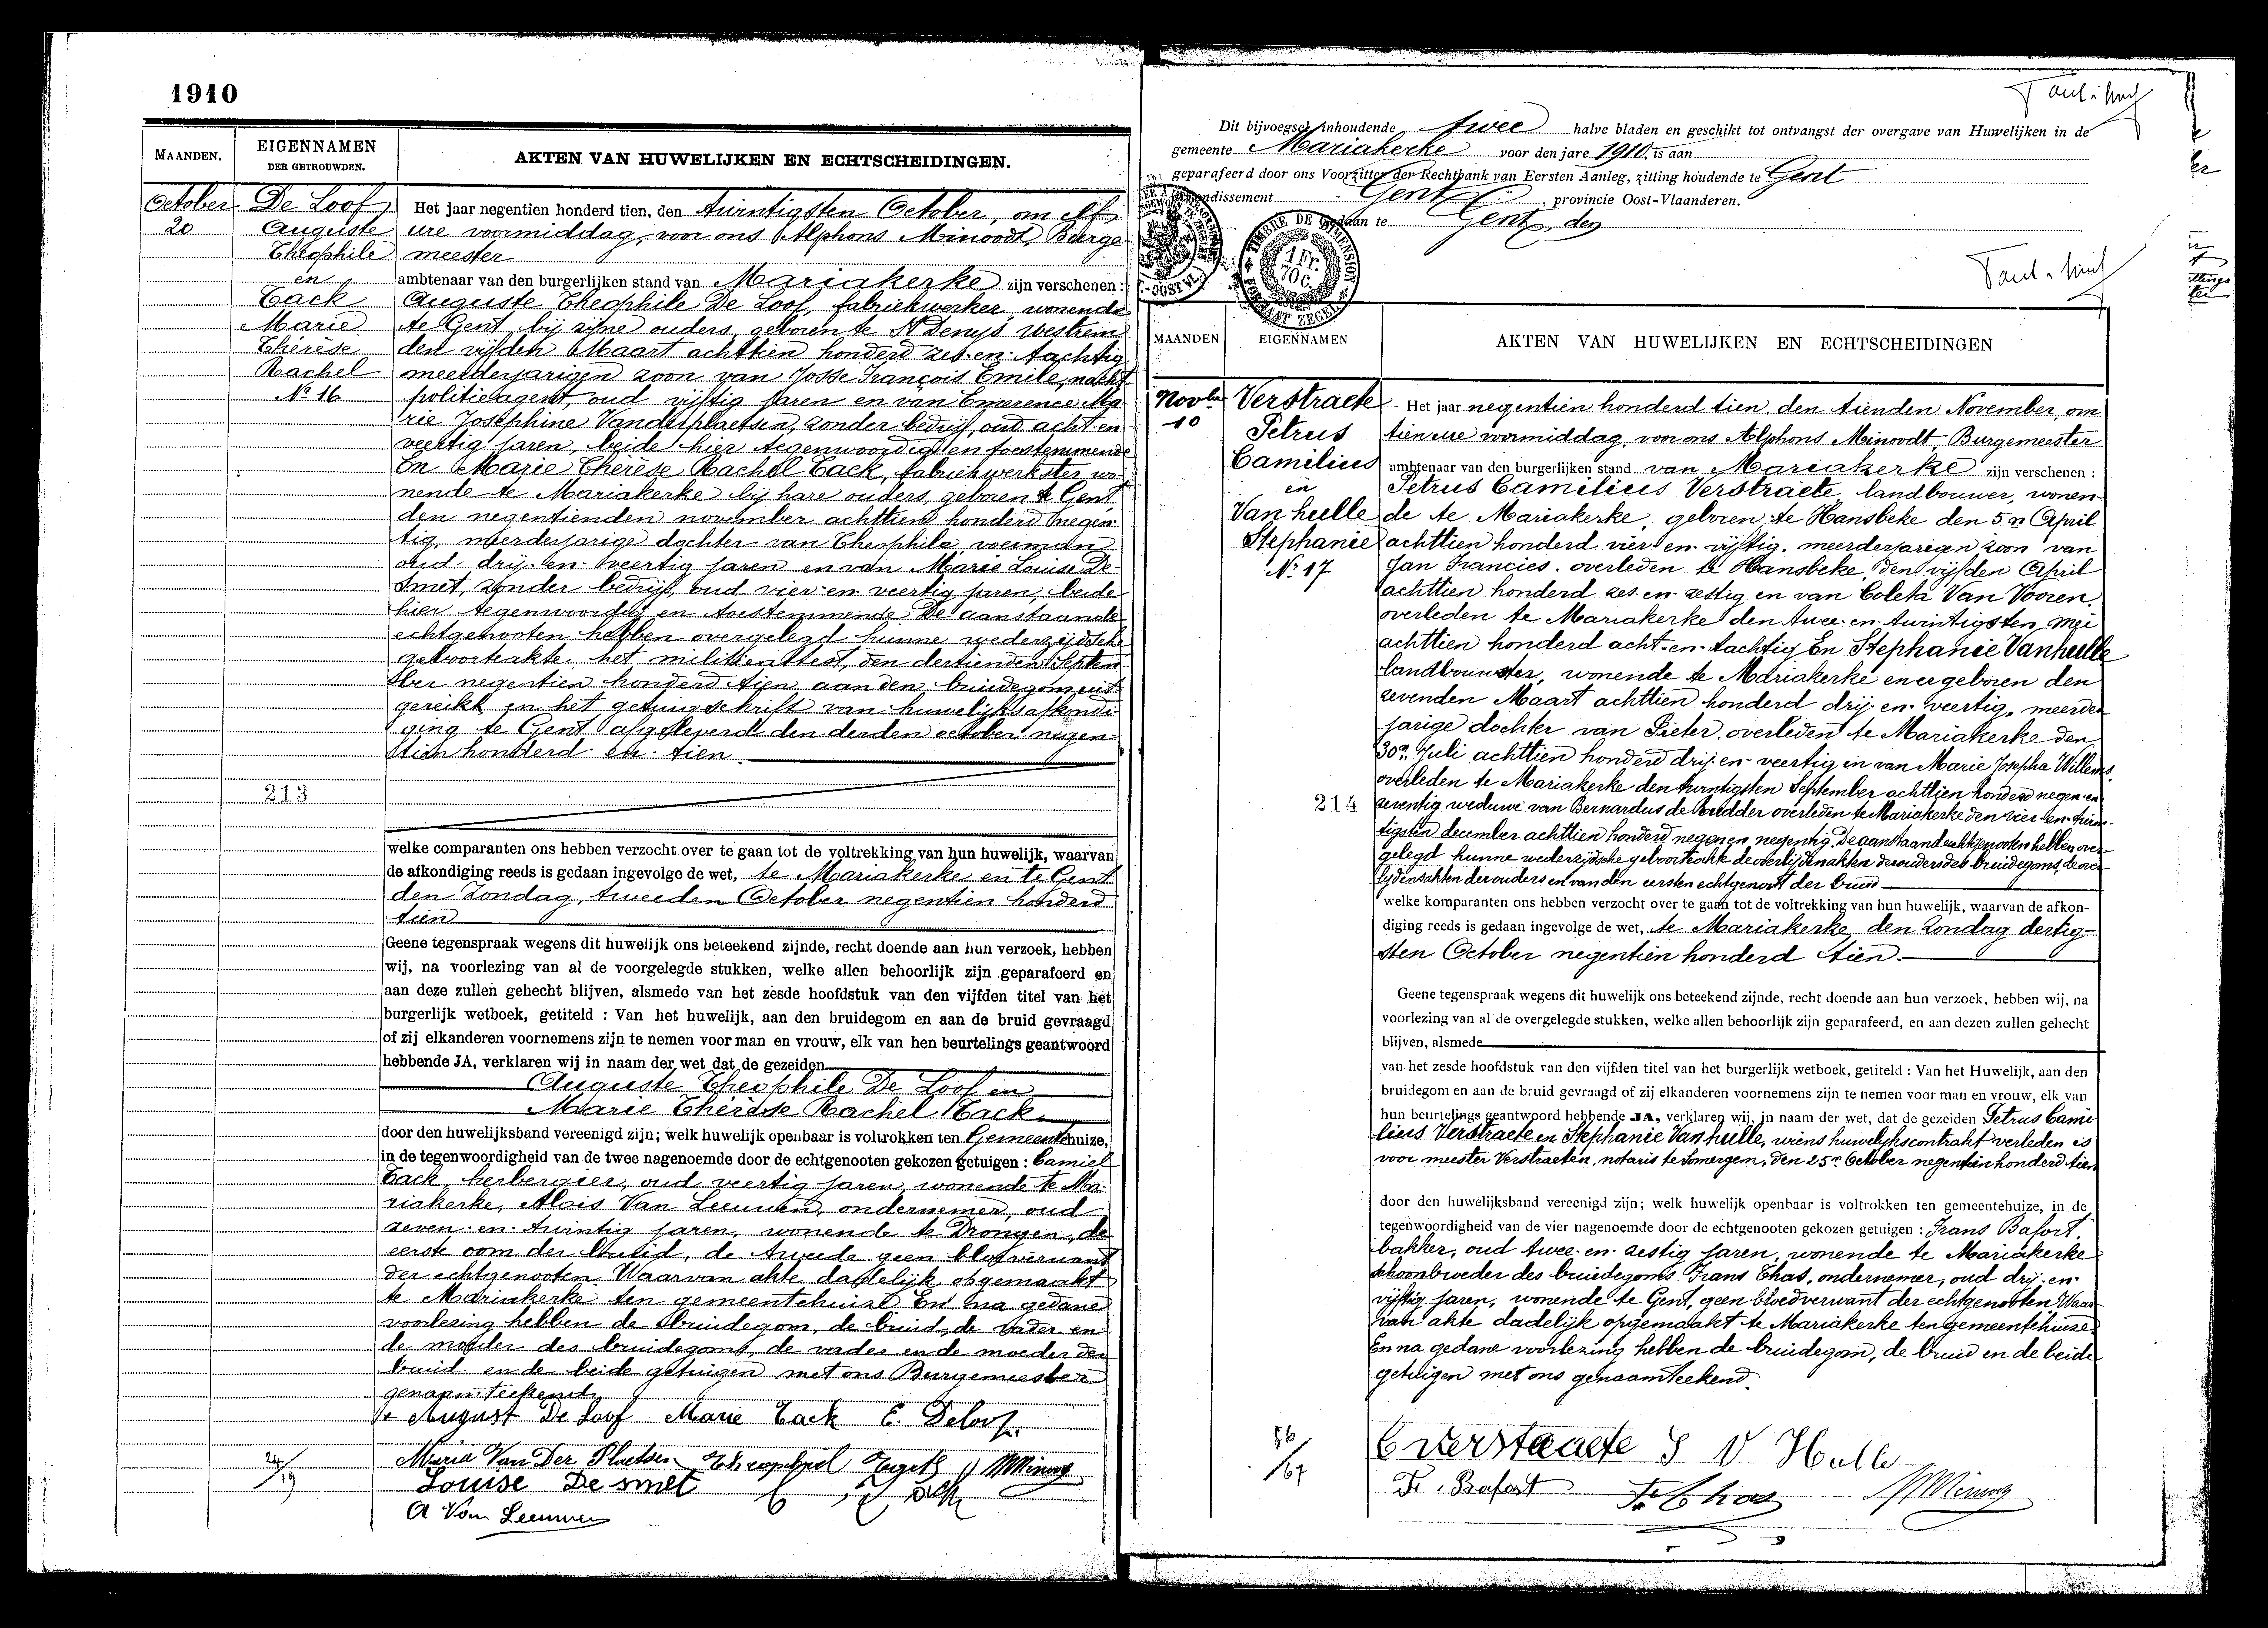 1910
MAANDEN.
EIGENNAMEN
DER GETROUWDEN.
AKTEN VAN HUWELIJKEN EN ECHTSCHEIDINGEN.
October
20
De Loof
Auguste
Theophile
en
Tack
Marie
Thérèse
Rachel
No 16
213
Het jaar negentien honderd tien, den twintigsten October, om elf
ure voormiddag, voor ons Alphons Minoodt, Burge
meester
ambtenaar van den burgerlijken stand van Mariakerke zijn verschenen :
Auguste Theophile De Loof, fabriekwerker, wonende
te Gent, bij zijne ouders, geboren te St Denys Westrem
den vijfden Maart achttien honderd zes-en-tachtig
meerderjarigen zoon van Josse François Emile, nacht
politieagent, oud vijftig jaren en van Emerence Ma
rie Josephine Vanderplaetsen, zonder bedrijf, oud acht en
veertig jaren, beide hier tegenwoordig en toestemmende
En Marie Thérèse Rachel Tack, fabriekwerkster, wo
nende te Mariakerke bij hare ouders, geboren te Gent,
den negentienden november achttien honderd negen
tig, meerderjarige dochter van Theophile, voerman
oud drij-en-veertig jaren en van Marie Louise De
Smet, zonder bedrijf, oud vier-en-veertig jaren, beide
hier tegenwoordig en toestemmende. De aanstaande
echtgenooten hebben overgelegd hunne wederzijdsche
geboorteakte het militieattest, den dertienden Septem
ber negentien honderd tien aan den bruidegom uit
gereikt en het getuigschrift van huwelijksafkondi
ging te Gent afgeleverd den derden october negen
tien honderd-en-tien.
welke comparanten ons hebben verzocht over te gaan tot de voltrekking van hun huwelijk, waarvan
de afkondiging reeds is gedaan ingevolge de wet, te Mariakerke en te Gent
den Zondag, tweeden October negentien honderd
tien
Geene tegenspraak wegens dit huwelijk ons beteekend zijnde, recht doende aan hun verzoek, hebben
wij, na voorlezing van al de voorgelegde stukken, welke allen behoorlijk zijn geparafeerd en
aan deze zullen gehecht blijven, alsmede van het zesde hoofdstuk van den vijfden titel van het
burgerlijk wetboek, getiteld : Van het huwelijk, aan den bruidegom en aan de bruid gevraagd
of zij elkanderen voornemens zijn te nemen voor man en vrouw, elk van hen beurtelings geantwoord
hebbende JA, verklaren wij in naam der wet dat de gezeiden
Auguste Theophile De Loof en
Marie Thérèse Rachel Tack
door den huwelijksband vereenigd zijn; welk huwelijk openbaar is voltrokken ten Gemeentehuize,
in de tegenwoordigheid van de twee nagenoemde door de echtgenooten gekozen getuigen : Camiel
Tack, herbergier, oud veertig jaren, wonende te Ma
riakerke, Alois Van Leeuwen, ondernemer, oud
zeven-en-twintig jaren, wonende te Drongen, de
eerste oom der bruid, de tweede geen bloedverwant
der echtgenooten. Waarvan akte dadelijk opgemaakt
te Mariakerke ten gemeentehuize En na gedane
voorlezing hebben de bruidegom, de bruid, de vader en
de moeder des bruidegoms, de vader en de moeder der
bruid en de beide getuigen met ons Burgemeester
genaamteekend
August De Loof Marie Tack E. Deloof
Maria Van Der Plaetsen
Louise De smet
A Van Leeuwen
24/19
Dit bijvoegsel inhoudende twee halve bladen en geschikt tot ontvangst der overgave van Huwelijken in de
gemeente Mariakerke voor den jare 1910 is aan
geparafeerd door ons Voorzitter der Rechtbank van Eersten Aanleg, zitting houdende te Gent
Gent, provincie Oost-Vlaanderen.
Gedaan te Gent, den
TIMBRE DE DIMENSION
1 Fr.
70 C.
FORMAAT ZEGEL
MAANDEN
EIGENNAMEN
AKTEN VAN HUWELIJKEN EN ECHTSCHEIDINGEN
Novber
10
Verstraete
Petrus
Camilius
en
Van hulle
Stephanie
No 17
214
Het jaar negentien honderd tien, den tienden November, om
tien ure voormiddag, voor ons Alphons Minoodt, Burgemeester
ambtenaar van den burgerlijken stand van Mariakerke zijn verschenen :
Petrus Camilius Verstraete, landbouwer, wonen
de te Mariakerke, geboren te Hansbeke den 5n April
achttien honderd vier-en-vijftig, meerderjarigen zoon van
Jan Francies, overleden te Hansbeke, den vijfden April
achttien honderd zes-en-zestig en van Coleta Van Vooren,
overleden te Mariakerke den twee-en-twintigsten Mei
achttien honderd acht-en-tachtig En Stephanie Vanhulle
landbouwster, wonende te Mariakerke en er geboren den
zevenden Maart achttien honderd drij-en-veertig, meerder
jarige dochter van Pieter, overleden te Mariakerke den
30n Juli achttien honderd drij-en-veertig en van Marie Josepha Willems,
overleden te Mariakerke den twintigsten September achttien honderd negen-en-
zeventig weduwe van Bernardus de Vredder overleden te Mariakerke den vier-en-twin-
tigsten december achttien honderd negen en negentig. De aanstaande echtgenooten hebben over-
gelegd hunne wederzijdsche geboorteakte de overlijdenakten der ouders des bruidegoms, de over
lijdensakten der ouders en van den eersten echtgenoot der bruid
welke komparanten ons hebben verzocht over te gaan tot de voltrekking van hun huwelijk, waarvan de afkon-
diging reeds is gedaan ingevolge de wet, te Mariakerke, den Zondag dertig-
sten October negentien honderd tien.
Geene tegenspraak wegens dit huwelijk ons beteekend zijnde, recht doende aan hun verzoek, hebben wij, na
voorlezing van al de overgelegde stukken, welke allen behoorlijk zijn geparafeerd, en aan dezen zullen gehecht
blijven, alsmede
van het zesde hoofdstuk van den vijfden titel van het burgerlijk wetboek, getiteld : Van het Huwelijk, aan den
bruidegom en aan de bruid gevraagd of zij elkanderen voornemens zijn te nemen voor man en vrouw, elk van
hun beurtelings geantwoord hebbende JA, verklaren wij, in naam der wet, dat de gezeiden Petrus Cami
lius Verstraete en Stephanie Van hulle, wiens huwelijkscontrakt verleden is
voor meester Verstraeten, notaris te Somergem, den 25n October negentien honderd tien
door den huwelijksband vereenigd zijn; welk huwelijk openbaar is voltrokken ten gemeentehuize, in de
tegenwoordigheid van de vier nagenoemde door de echtgenooten gekozen getuigen : Frans Bafort,
bakker, oud twee-en-zestig jaren, wonende te Mariakerke
schoonbroeder des bruidegoms Frans Thas, ondernemer, oud drij-en-
vijftig jaren, wonende te Gent, geen bloedverwant der echtgenooten, Waar
van akte dadelijk opgemaakt te Mariakerke ten gemeentehuize.
En na gedane voorlezing hebben de bruidegom, de bruid en de beide
getuigen met ons genaamteekend.
C verstraete S V Hulle
Fr. Bafort
56/67